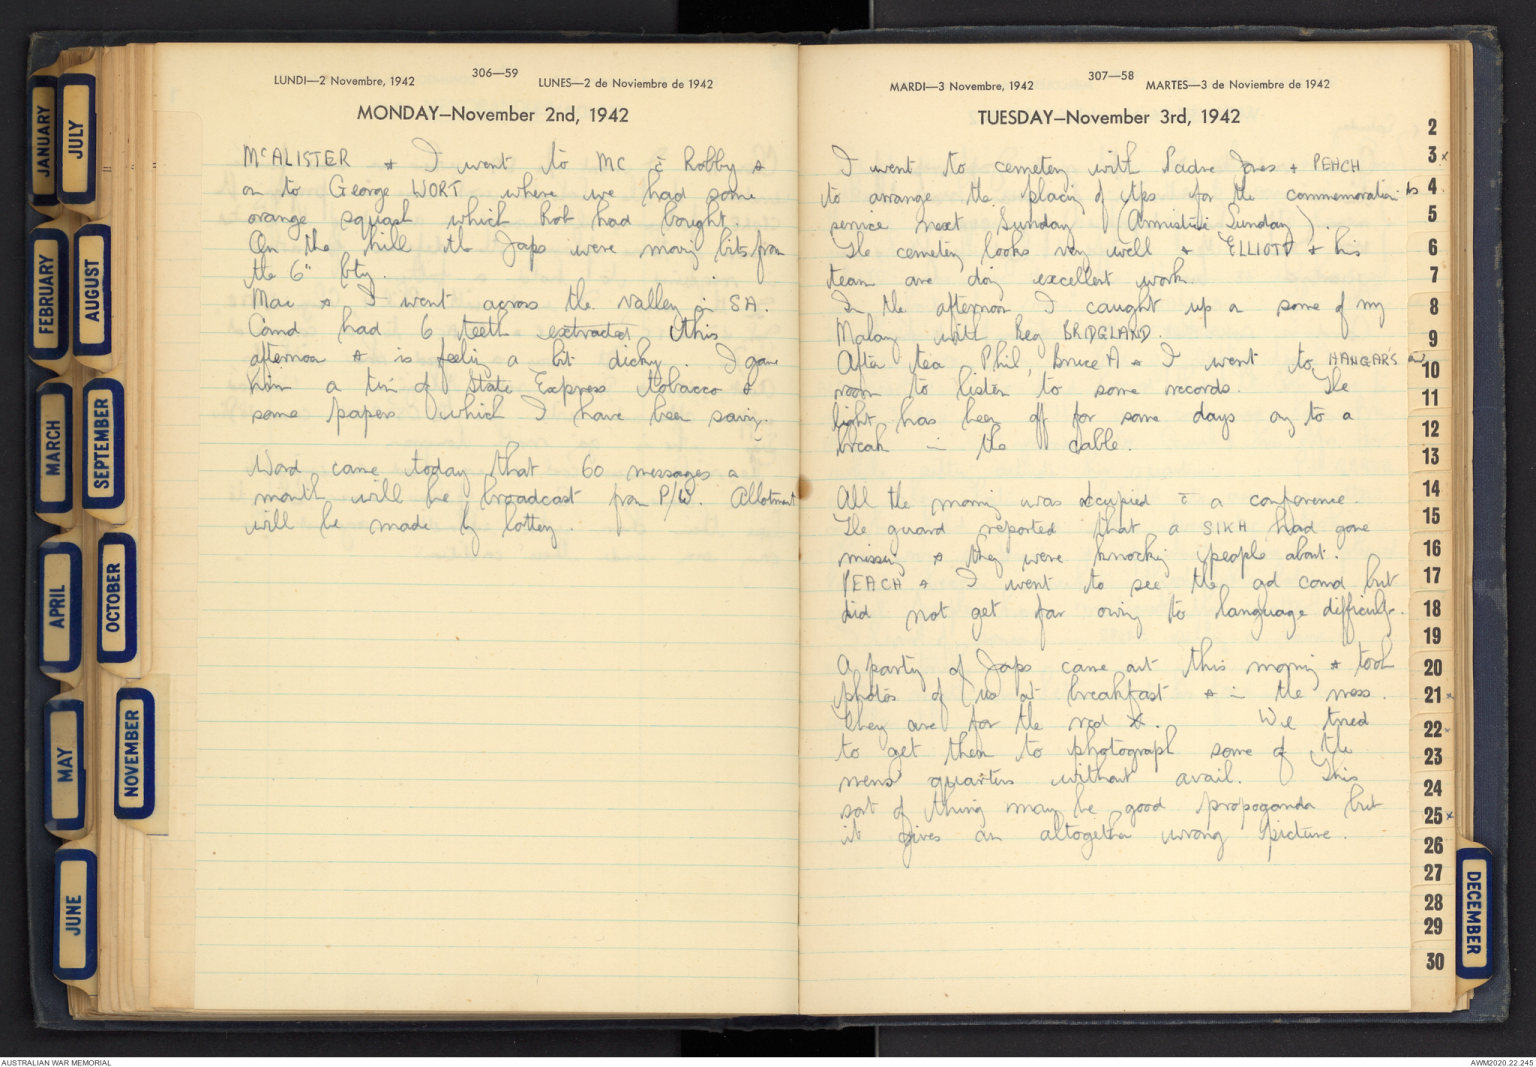 LUNDI—2 Novembre, 1942
306—59
LUNES—2 de Noviembre de 1942
MONDAY—November 2nd, 1942
McALISTER & I went to MC c̄ Robby &
on to George WORT where we had some
orange squash which Rob had bought.
On the hill the Japs were moving bits from
the 6" bty.
Mac & I went across the valley in SA.
Comd had 6 teeth extracted this
afternoon & is feeling a bit dicky. I gave
him a tin of State Express tobacco &
some papers which I have been saving.
Word came today that 60 messages a
month will be broadcast from P/W. Allotment
will be made by lottery.
MARDI—3 Novembre, 1942
307—58
MARTES—3 de Noviembre de 1942
TUESDAY—November 3rd, 1942
I went to cemetery with Padre Jones & PEACH
to arrange the placing of tps for the commemoration
service next Sunday (Armistice Sunday).
The cemetery looks very well & ELLIOTT & his
team are doing excellent work.
In the afternoon I caught up a some of my
Malay with Reg BRIDGLAND.
After tea Phil, Bruce A & I went to HANGAR'S
room to listen to some records. The
light has been off for some days owing to a
break in the cable.
All the morning was occupied c̄ a conference.
The guard reported that a SIKH had gone
missing & they were knocking people about.
PEACH & I went to see the gd comd but
did not get far owing to language difficulty.
A party of Japs came out this morning & took
photos of us at breakfast & in the mess.
They are for the red X. We tried
to get them to photograph some of the
mens' quarters without avail. This
sort of thing may be good propoganda but
it gives an altogether wrong picture.
JANUARY
JULY
FEBRUARY
AUGUST
MARCH
SEPTEMBER
APRIL
OCTOBER
MAY
NOVEMBER
JUNE
DECEMBER
2
3 x
4
5
6
7
8
9
10
11
12
13
14
15
16
17
18
19
20
21 x
22 x
23
24
25 x
26
27
28
29
30
AUSTRALIAN WAR MEMORIAL
AWM2020.22.245